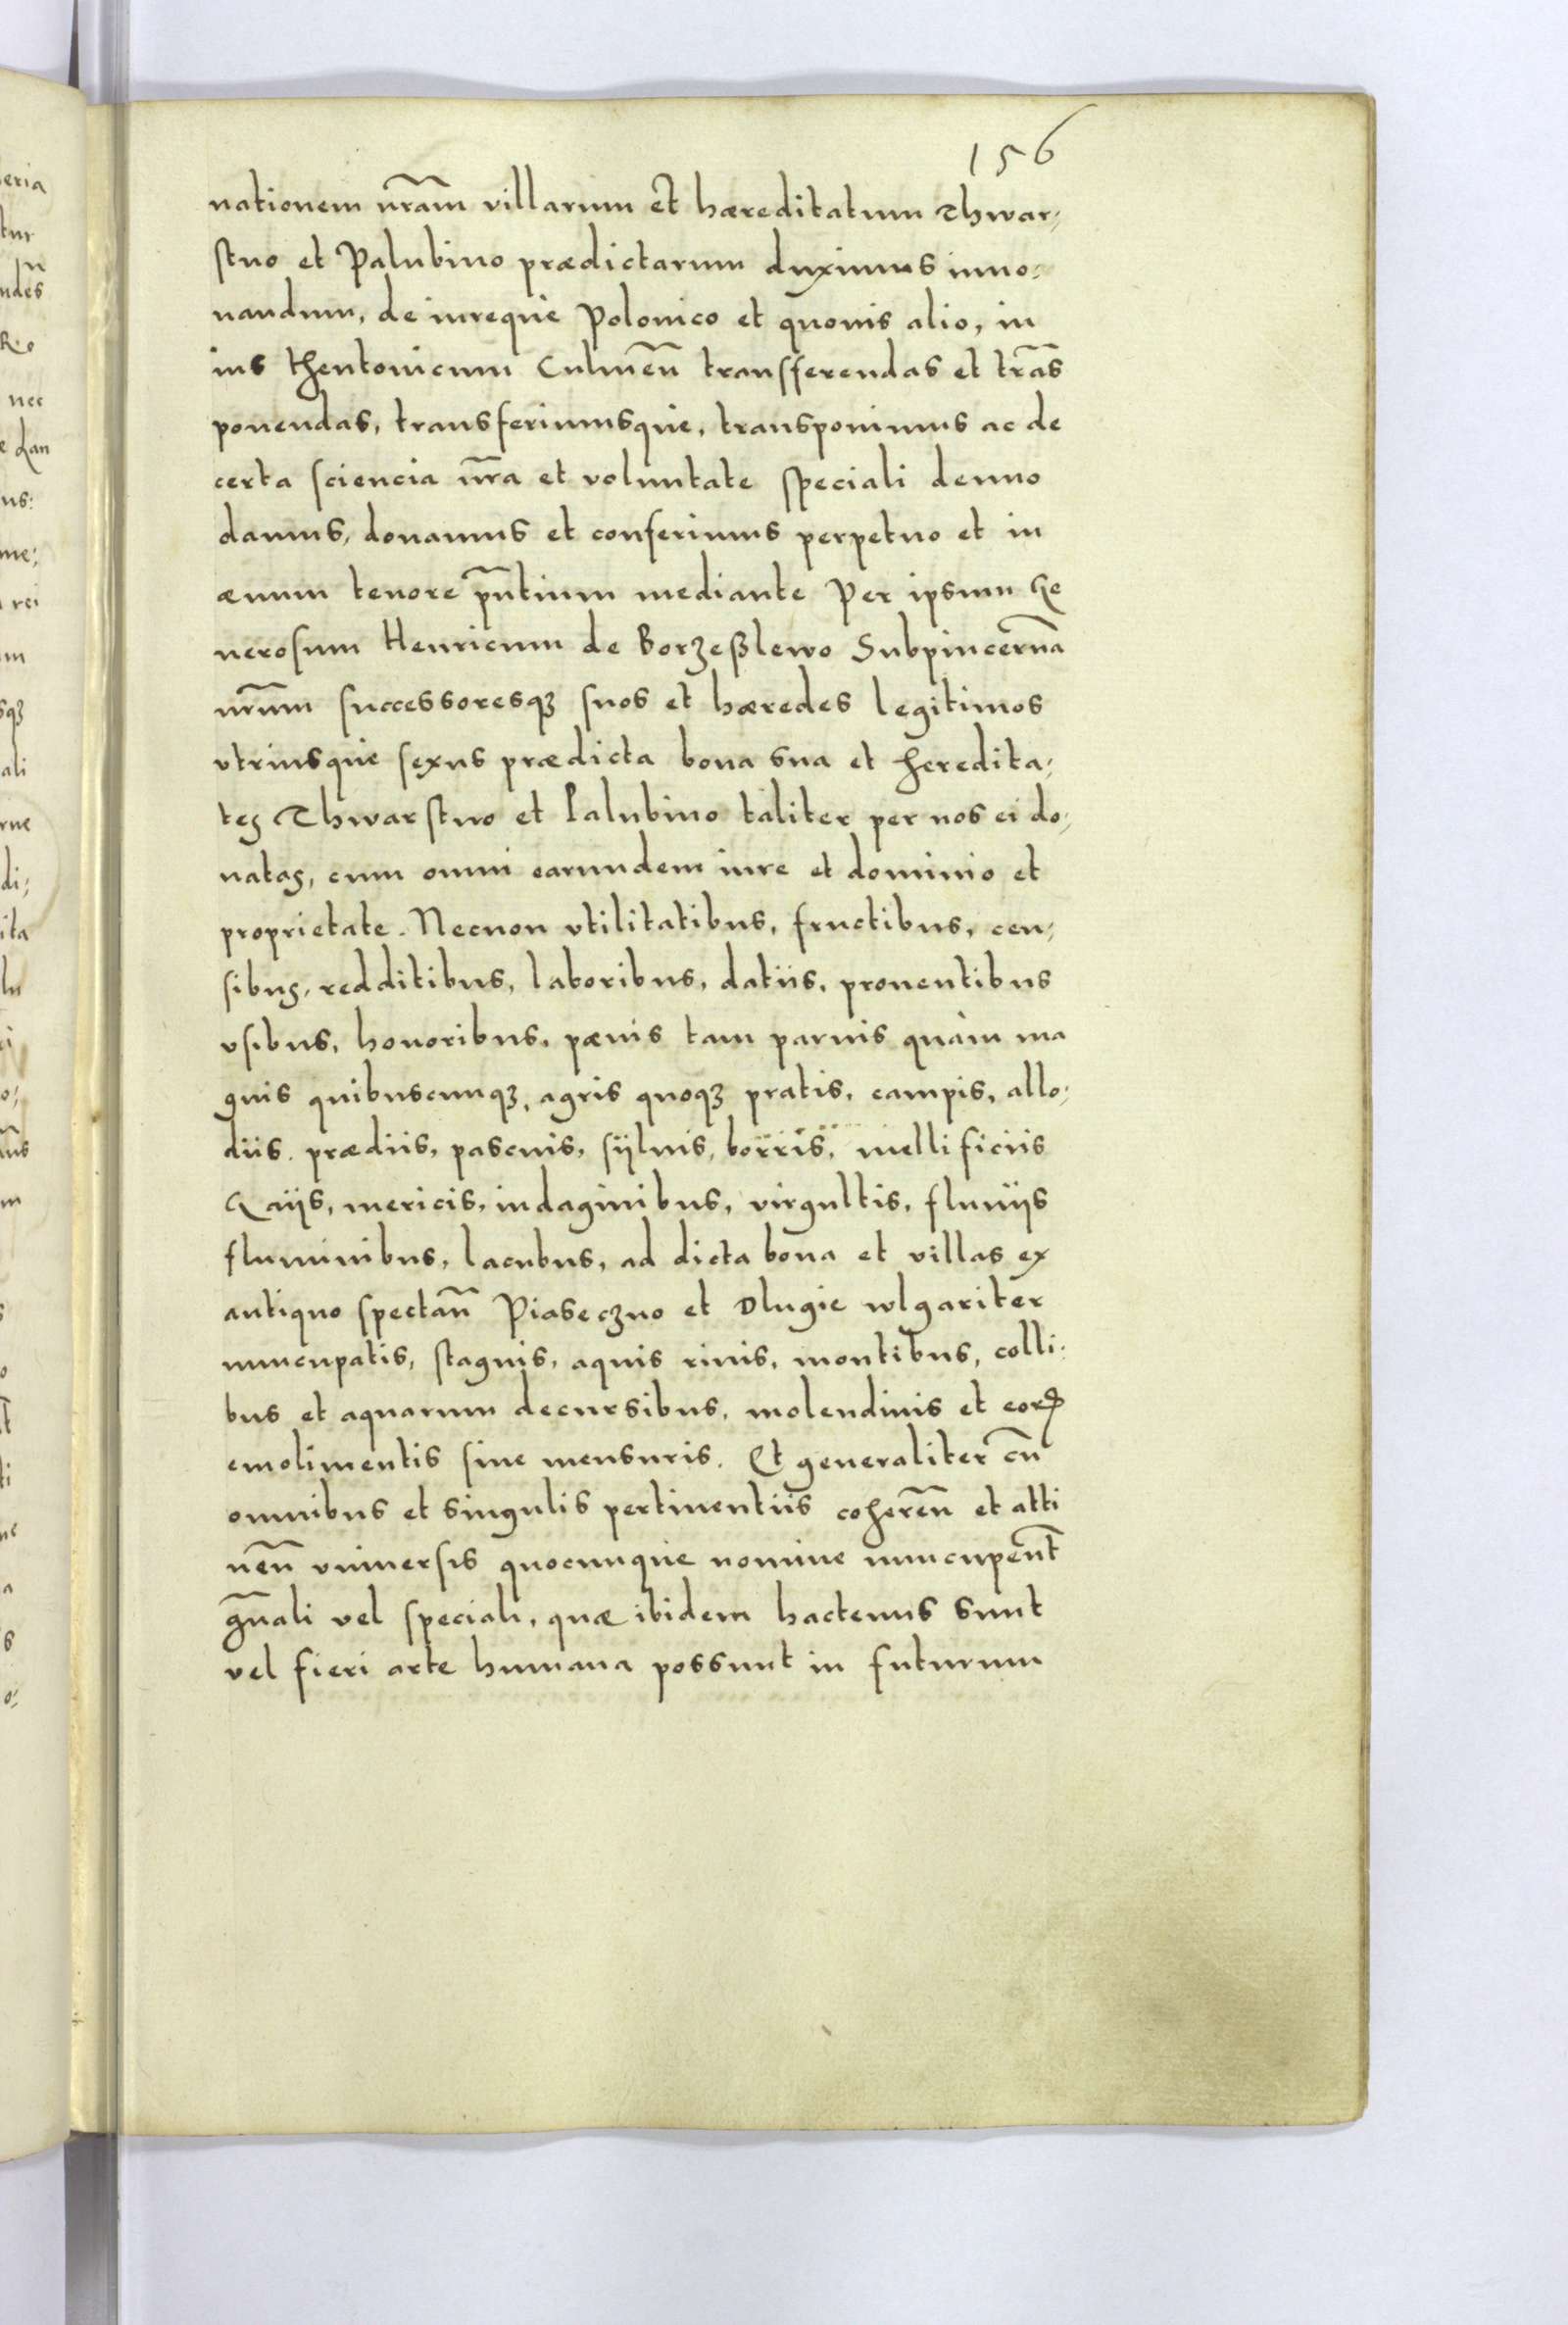 156
nationem nr̃am villarum et hæreditatum Thwar,
stuo et Palubino prædictarum duximus inno,
uandum, de iureque Polonico et quouis alio, in
ius thentonicum Culmeñ transferendas et trãs
ponendas, transferimusque, transponimus ac de
certa sciencia nr̃a et voluntate speciali denuo
damus, donamus et conferimus perpetuo et in
æuum tenore pñtium mediante Per ipsum Ge
nerosum Henricum de Borzeßlewo Subpincernã
nr̃um successoresqꝫ suos et hæredes legitimos
vtriusque sexus prædicta bona sua et heredita,
tes Thwarstuo et Palubino taliter per nos ei do,
natas, cum omni earundem iure et dominio et
proprietate. Necnon vtilitatibus, fructibus, cen,
sibus, redditibus, laboribus, datiis, prouentibus
vsibus, honoribus, pænis tam paruis quàm ma
gnis quibuscunqꝫ, agris quoqꝫ pratis, campis, allo,
diis. prædiis, pascuis, sÿluis, borris, mellificiis
Gaiis, mericis, indaginibus, virgultis, fluuiis
fluminibus, lacubus, ad dicta bona et villas ex
antiquo spectañ Piaseczno et Dlugie wlgariter
nuncupatis, stagnis, aquis riuis, montibus, colli,
bus et aquarum decursibus, molendinis et eorꝝ
emolimentis siue mensuris. Et generaliter cũ
omnibus et singulis pertinentiis cohereñ et atti
neñ vniuersis quocunque nomine nuncupent̃
gñali vel speciali, quæ ibidem hactenus sunt
vel fieri arte humana possunt in futurum